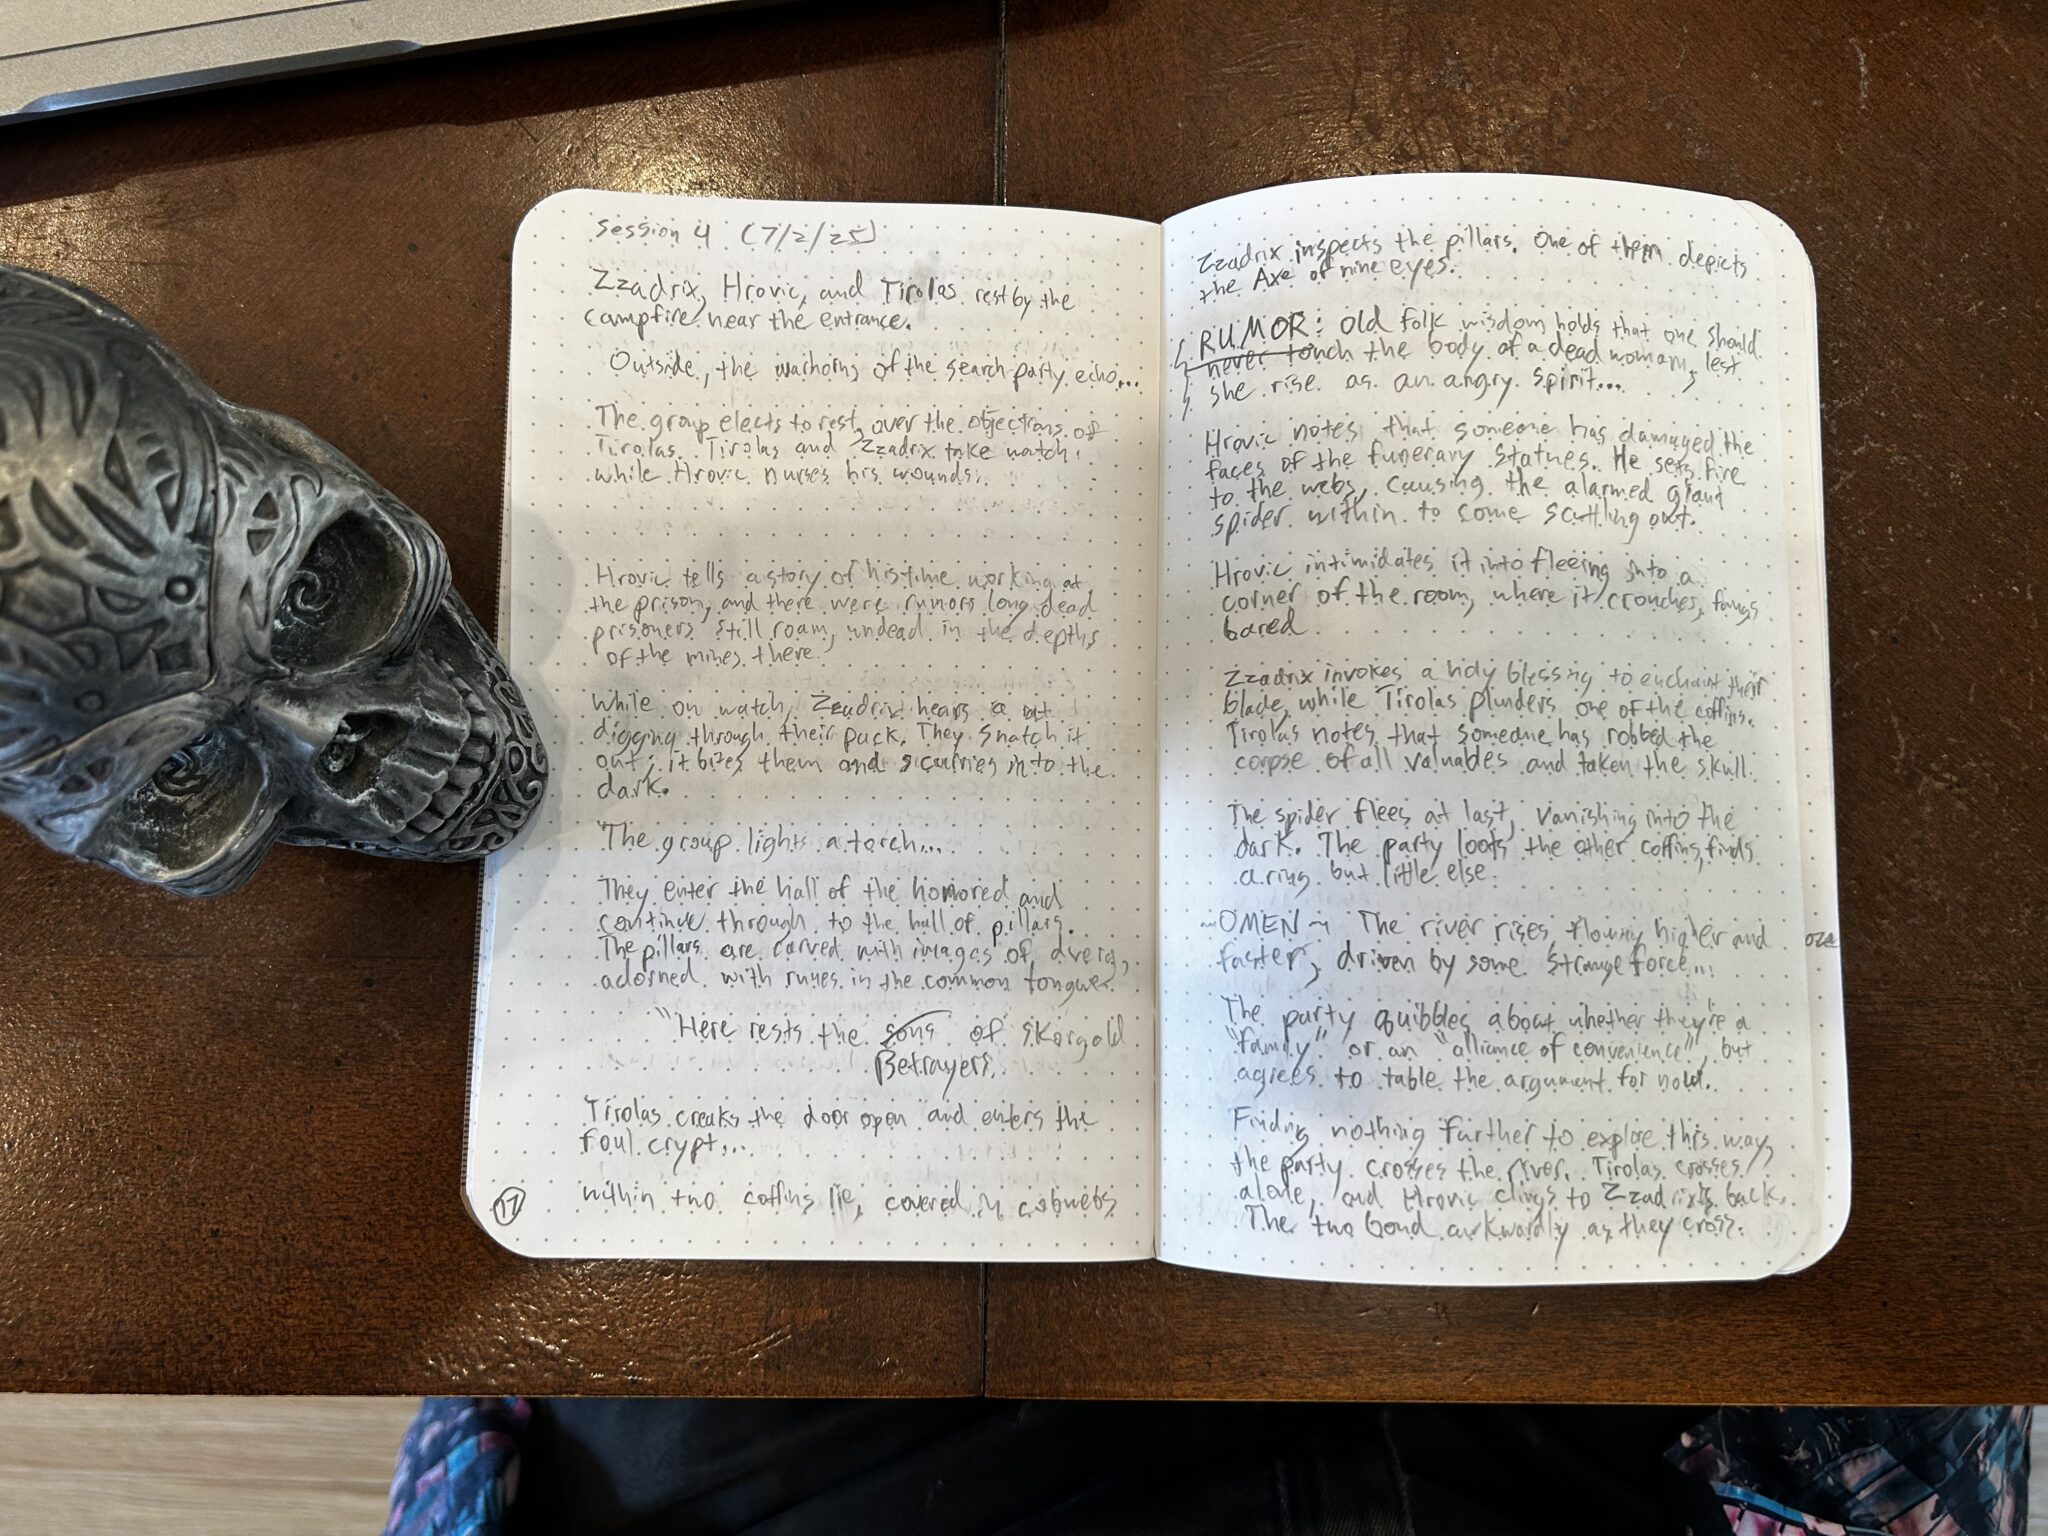 Session 4 (7/2/25)
Zzadrix, Hrovic, and Tirolas rest by the
campfire near the entrance.
Outside, the warhorns of the search party echo...
The group elects to rest, over the objections of
Tirolas. Tirolas and Zzadrix take watch
while Hrovic nurses his wounds.
Hrovic tells a story of his time working at
the prison, and there were rumors long dead
prisoners still roam, undead in the depths
of the mines there.
While on watch, Zzadrix hears a rat
digging through their pack. They snatch it
out; it bites them and scurries into the
dark.
The group lights a torch...
They enter the hall of the honored and
continue through to the hall of pillars.
The pillars are carved with images of dverg,
adorned with runes in the common tongue.
"Here rests the sons of Skorgold
Betrayers.
Tirolas creaks the door open and enters the
foul crypt...
within two coffins lie, covered in cobwebs
17
Zzadrix inspects the pillars. One of them depicts
the Axe of nine eyes.
RUMOR: Old folk wisdom holds that one should
never touch the body of a dead woman, lest
she rise as an angry spirit...
Hrovic notes that someone has damaged the
faces of the funerary statues. He sets fire
to the webs, causing the alarmed giant
spider within to come scuttling out.
Hrovic intimidates it into fleeing into a
corner of the room, where it crouches, fangs
bared
Zzadrix invokes a holy blessing to enchant their
blade, while Tirolas plunders one of the coffins.
Tirolas notes that someone has robbed the
corpse of all valuables and taken the skull.
The spider flees at last, vanishing into the
dark. The party loots the other coffins, finds
a ring but little else.
~OMEN~ The river rises, flowing higher and
faster, driven by some strange force...
The party quibbles about whether they're a
"family" or an "alliance of convenience", but
agrees to table the argument for now.
Finding nothing further to explore this way,
the party crosses the river. Tirolas crosses
alone, and Hrovic clings to Zzadrix's back.
The two bond awkwardly as they cross.